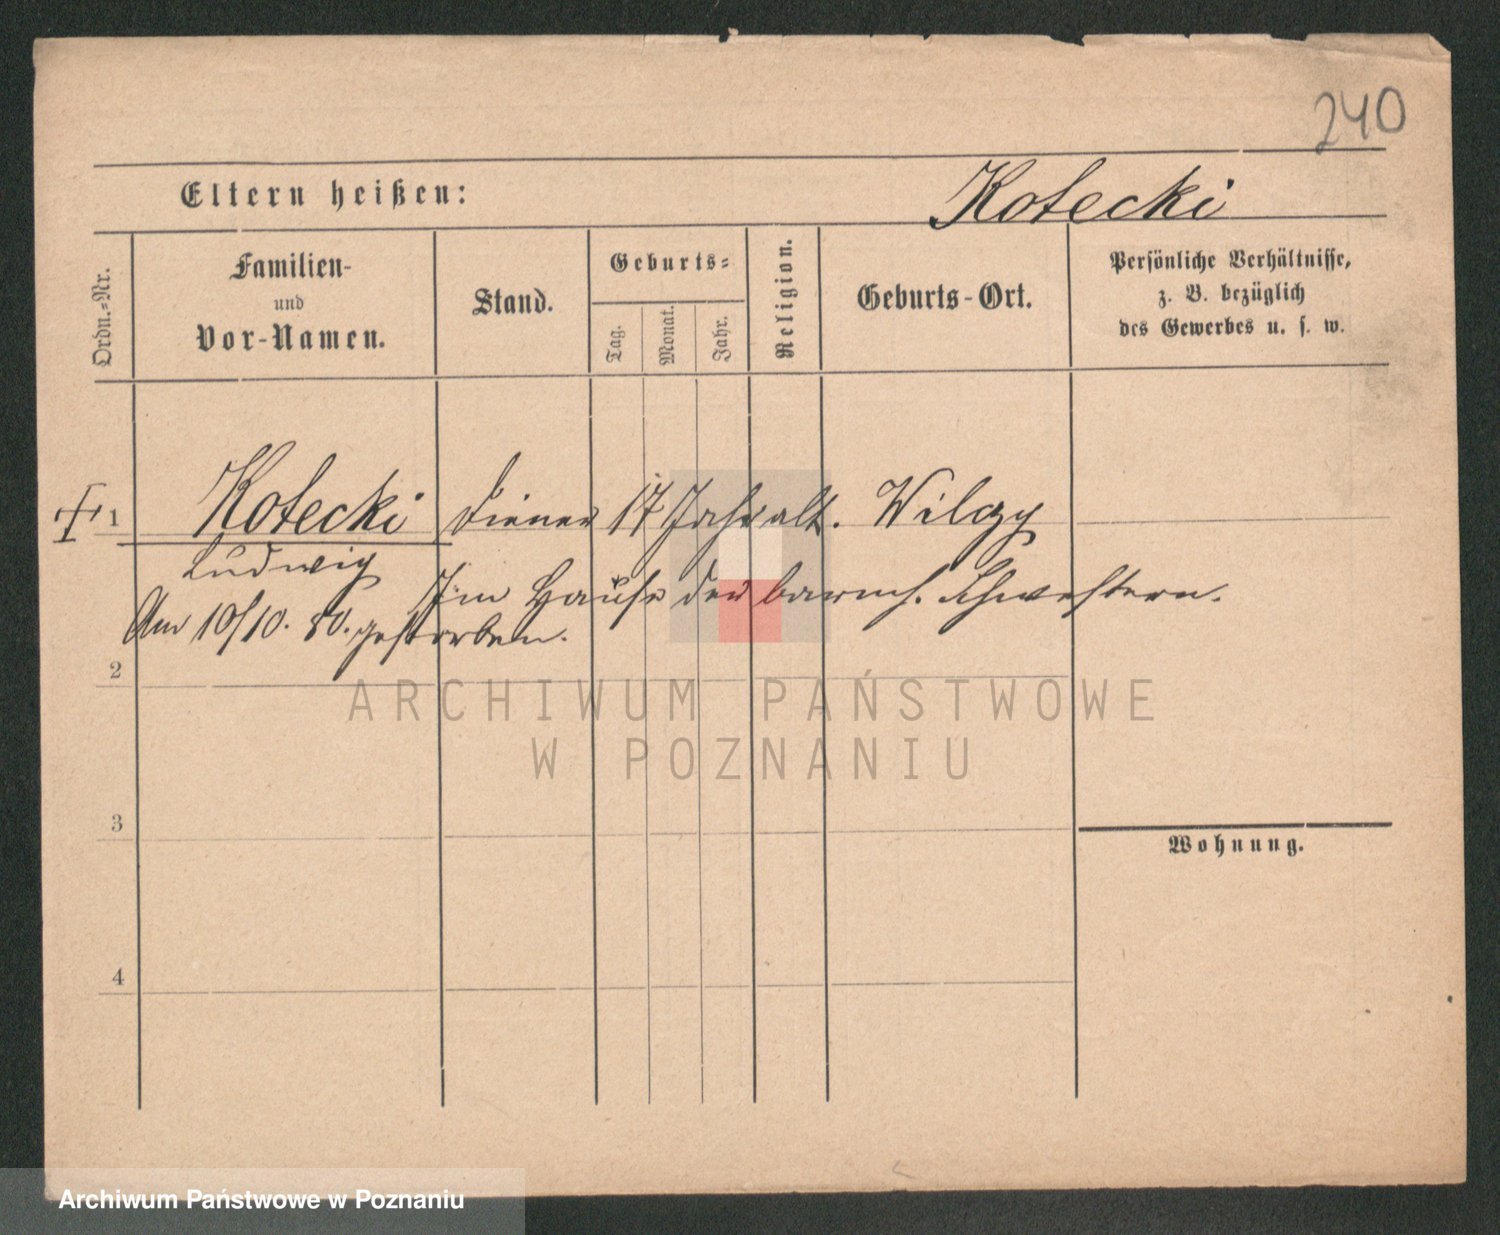 240
Eltern heißen:
Kotecki
Ordn.-Nr.
Familien-
und
Vor-Namen.
Stand.
Geburts-
Tag.
Monat.
Jahr.
Religion.
Geburts-Ort.
Persönliche Verhältnisse,
z. B. bezüglich
des Gewerbes u. s. w.
1 Kotecki Diener 17 Jahr alt.
Ludwig
Im Hause der barmh. Schwestern.
Am 10/10. 80. gestorben.
2
ARCHIWUM PAŃSTWOWE
W POZNANIU
3
Wohnung.
4
Archiwum Państwowe w Poznaniu